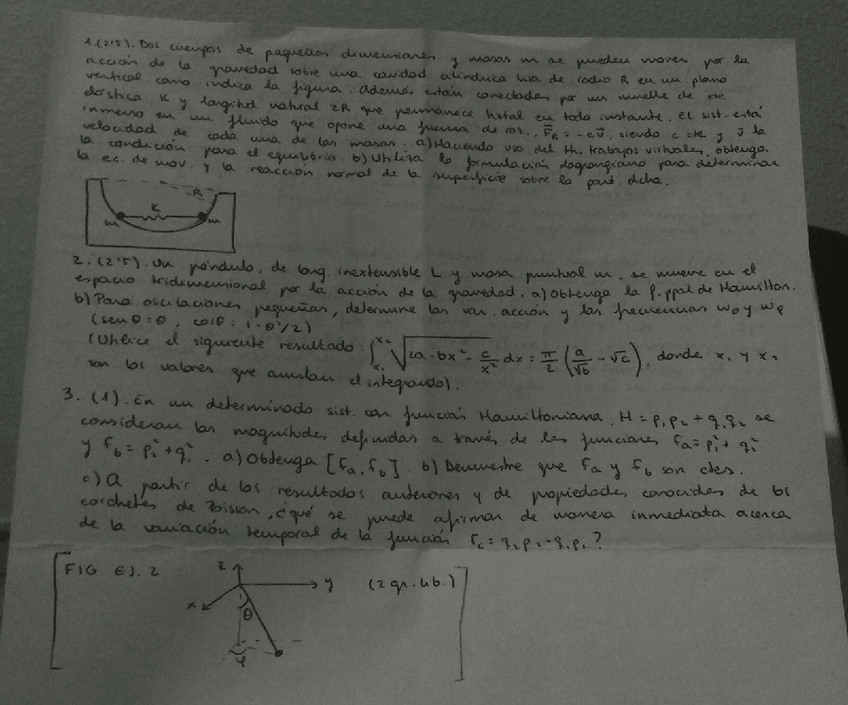 1.(2'5). Dos cuerpos de pequeñas dimensiones y masas m se pueden mover por la
acción de la gravedad sobre una cavidad cilíndrica lisa de radio R en un plano
vertical como indica la figura. Además están conectados por un muelle de cte
elástica K y longitud natural 2R que permanece hztal en todo instante. El sist. está
inmerso en un fluido que opone una fuerza de roz. F_R = -cv, siendo c cte y v la
velocidad de cada una de las masas. a) Haciendo uso del th. trabajos virtuales, obtenga
la condición para el equilibrio. b) Utiliza la formulación lagrangiana para determinar
la ec. de mov. y la reacción normal de la superficie sobre la part. dcha.
R
K
m m
2. (2'5). Un péndulo, de long. inextensible L y masa puntual m, se mueve en el
espacio tridimensional por la acción de la gravedad. a) Obtenga la f. ppal de Hamilton.
b) Para oscilaciones pequeñas, determine las var. acción y las frecuencias ωθ y ωφ
(senθ = θ, cosθ = 1-θ²/2)
(Utilice el siguiente resultado ∫_{x₁}^{x₂} √(2a - bx² - c/x²) dx = π/2 (a/√b - √c), donde x₁ y x₂
son los valores que anulan el integrando).
3. (1). En un determinado sist. con función Hamiltoniana, H = p₁p₂ + q₁q₂ se
consideran las magnitudes definidas a través de las funciones fa = p₁² + q₂²
y fb = p₂² + q₁². a) Obtenga [fa, fb]. b) Demuestre que fa y fb son ctes.
c) A partir de los resultados anteriores y de propiedades conocidas de los
corchetes de Poisson, ¿qué se puede afirmar de manera inmediata acerca
de la variación temporal de la función fc = q₂p₂ - q₁p₁?
FIG EJ. 2
z
y
x
θ
φ
(2 gr. lib.)